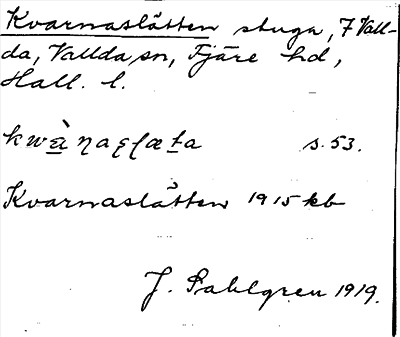 Kvarnaslätten stuga, 7 Vall-
da, Vallda sn, Fjäre hd,
Hall. l.
s. 53.
Kvarnaslätten 1915 kb
J. Sahlgren 1919.